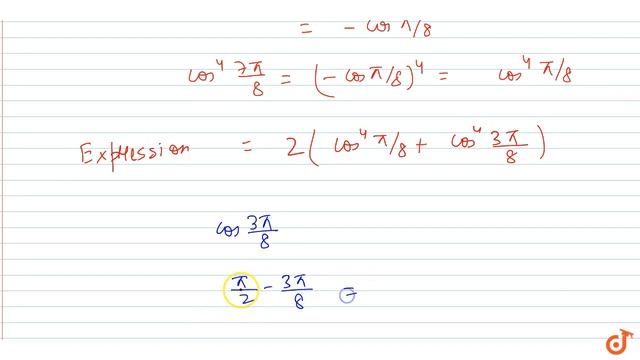 = - cos π/8
cos⁴ 7π/8 = (- cos π/8)⁴ = cos⁴ π/8
Expression = 2 ( cos⁴ π/8 + cos⁴ 3π/8 )
cos 3π/8
π/2 - 3π/8 =